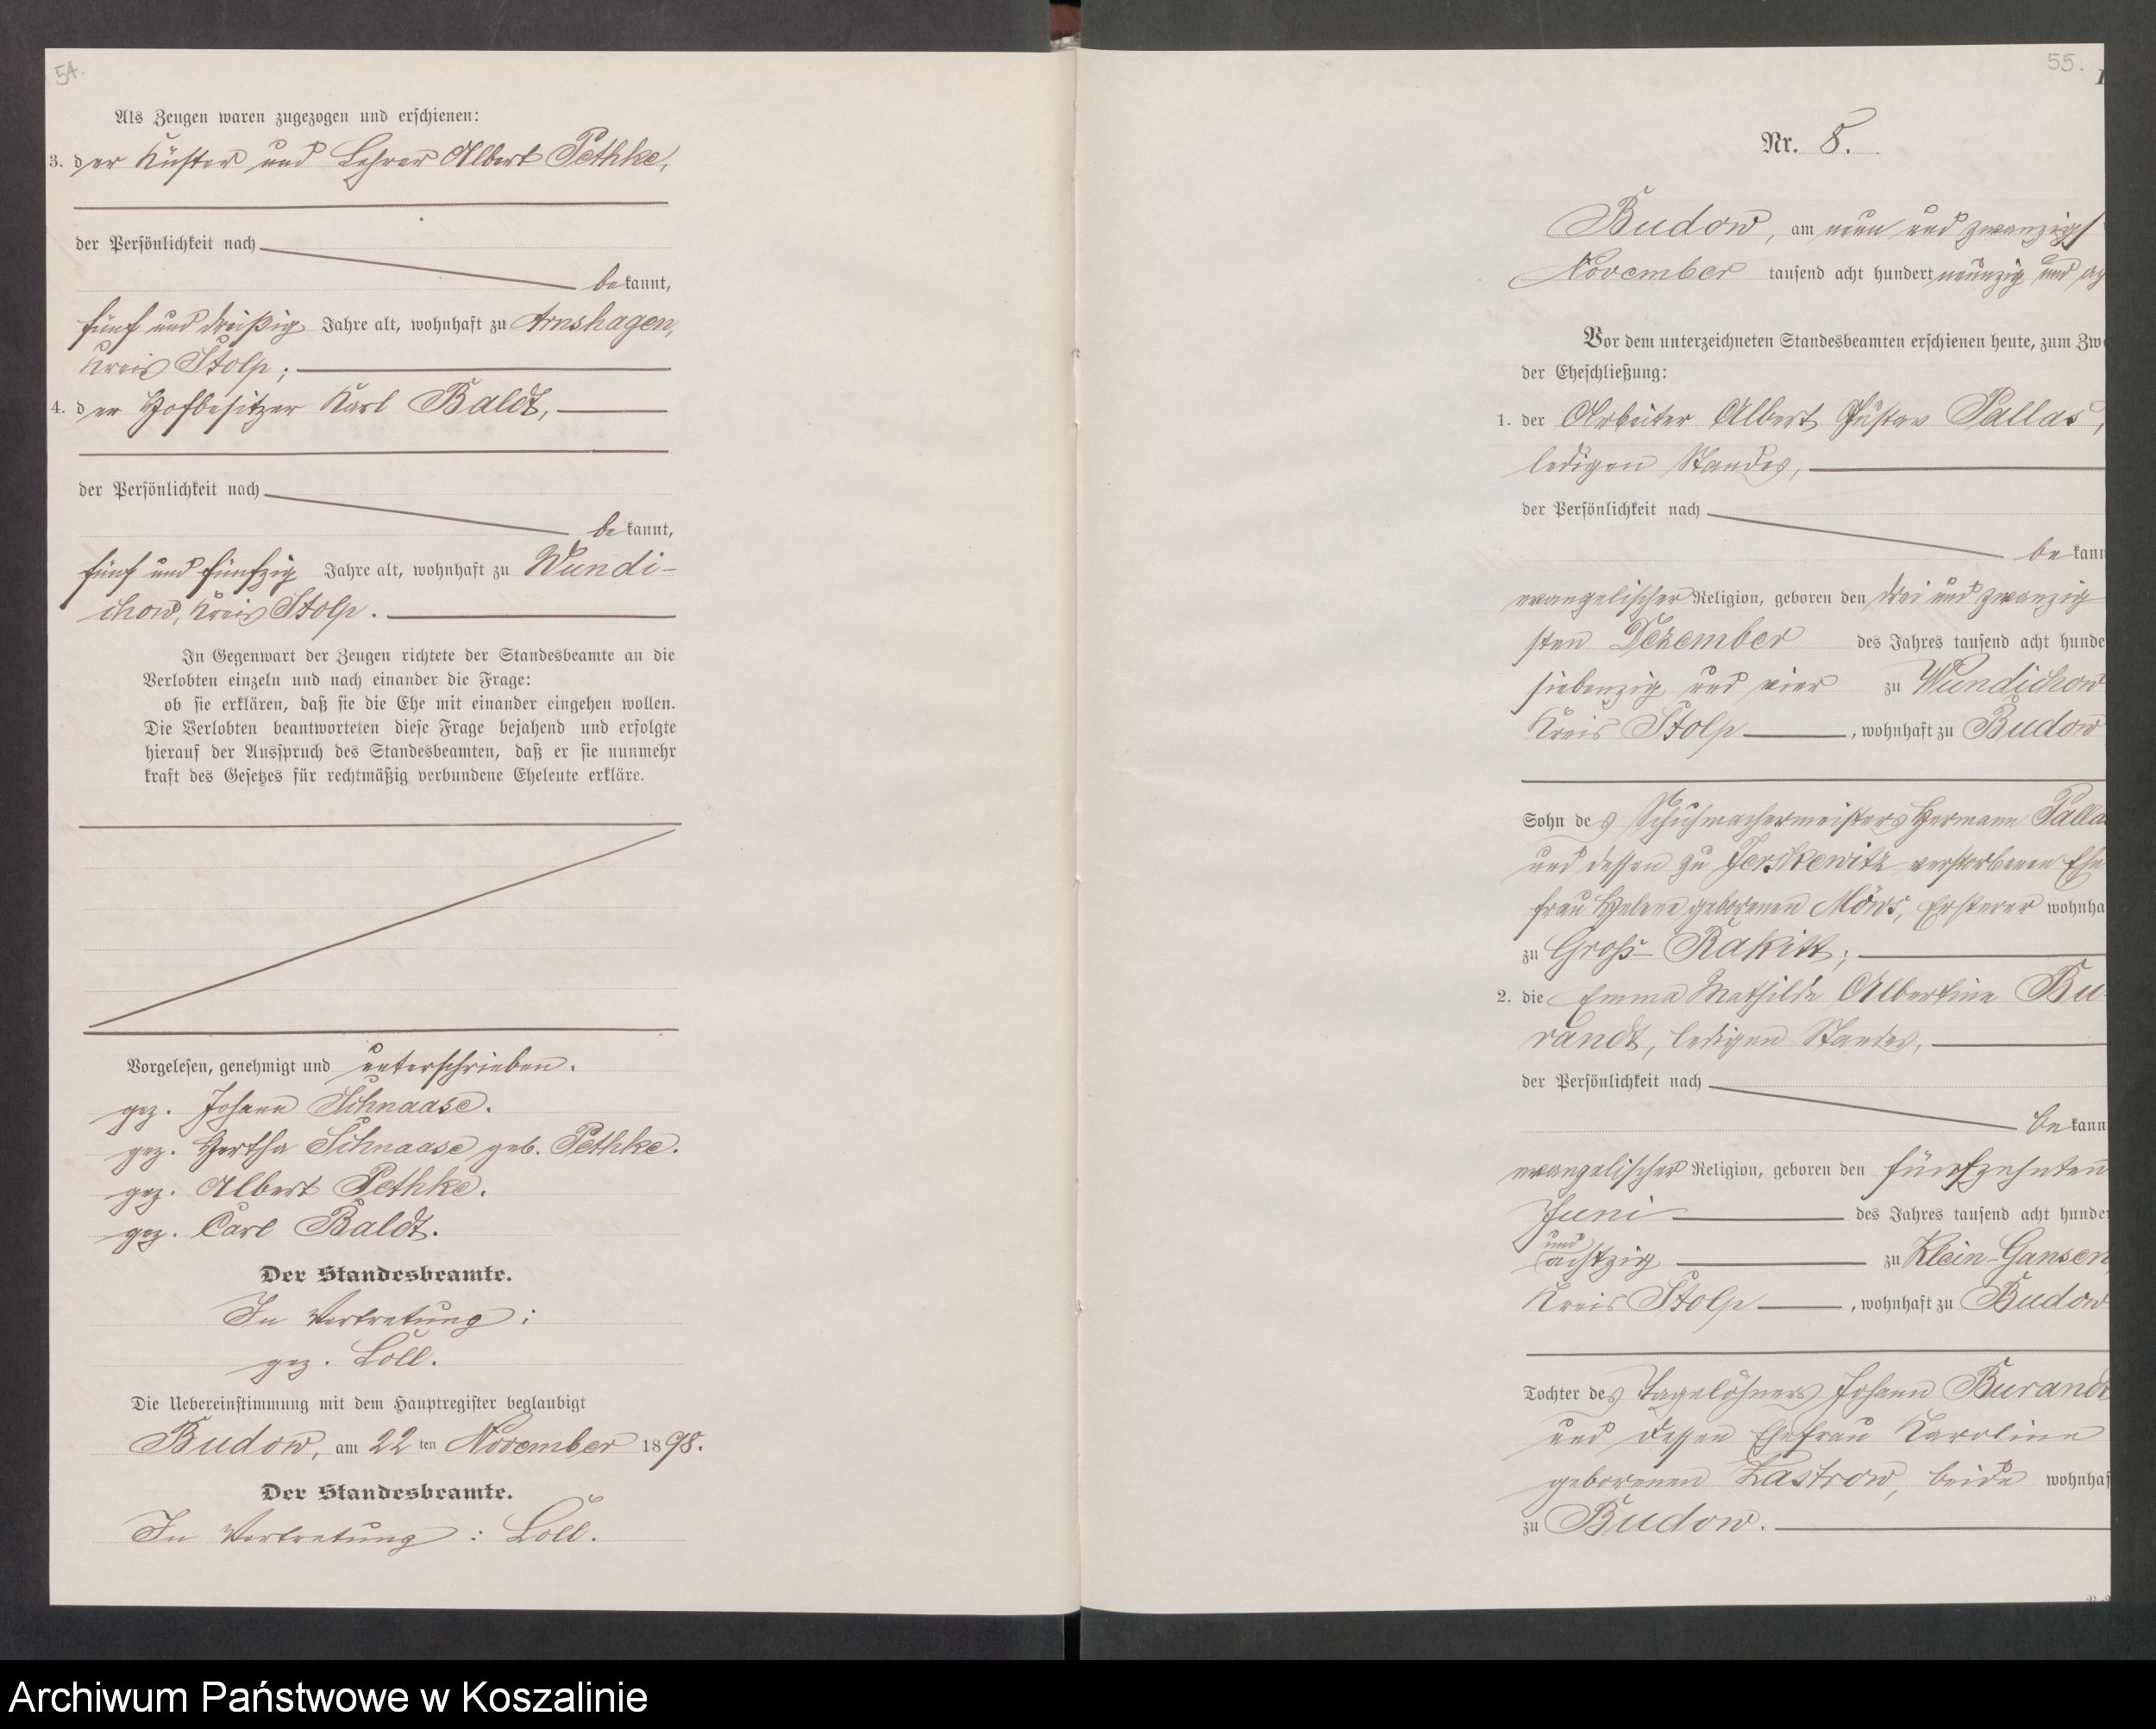 54.
Als Zeugen waren zugezogen und erschienen:
3. der Küster und Lehrer Albert Pethke,
der Persönlichkeit nach
bekannt,
fünf und dreißig Jahre alt, wohnhaft zu Arnshagen,
Kreis Stolp;
4. der Hofbesitzer Karl Baldt,
der Persönlichkeit nach
bekannt,
fünf und fünfzig Jahre alt, wohnhaft zu Wundi-
chow, Kreis Stolp.
In Gegenwart der Zeugen richtete der Standesbeamte an die
Verlobten einzeln und nach einander die Frage:
ob sie erklären, daß sie die Ehe mit einander eingehen wollen.
Die Verlobten beantworteten diese Frage bejahend und erfolgte
hierauf der Ausspruch des Standesbeamten, daß er sie nunmehr
kraft des Gesetzes für rechtmäßig verbundene Eheleute erkläre.
Vorgelesen, genehmigt und unterschrieben.
gez. Johann Schnaase.
gez. Hertha Schnaase geb. Pethke.
gez. Albert Pethke.
gez. Carl Baldt.
Der Standesbeamte.
In Vertretung:
gez. Löll.
Die Uebereinstimmung mit dem Hauptregister beglaubigt
Budow, am 22ten November 1898.
Der Standesbeamte.
In Vertretung: Löll.
55.
Nr. 8.
Budow, am neun und zwanzigst
November tausend acht hundert neunzig und
Vor dem unterzeichneten Standesbeamten erschienen heute, zum Zwe
der Eheschließung:
1. der Arbeiter Albert Gustav Pallas,
ledigen Standes,
der Persönlichkeit nach
bekann
evangelischer Religion, geboren den drei und zwanzig
sten Dezember des Jahres tausend acht hunde
siebenzig und vier zu Wundichow
Kreis Stolp, wohnhaft zu Budow
Sohn des Schuhmachermeisters Hermann Palla
und dessen zu Jerskewitz verstorbenen Ehe
frau Helene geborenen Möws, Ersterer wohnha
zu Groß-Rakitt;
2. die Emma Mathilde Albertine Bu-
randt, ledigen Standes,
der Persönlichkeit nach
bekann
evangelischer Religion, geboren den fünfzehnten
Juni des Jahres tausend acht hunder
und
achtzig zu Klein-Gansen,
Kreis Stolp, wohnhaft zu Budow
Tochter des Tagelöhners Johann Burandt
und dessen Ehefrau Karoline
geborenen Lastrow, beide wohnhaf
zu Budow.
Archiwum Państwowe w Koszalinie